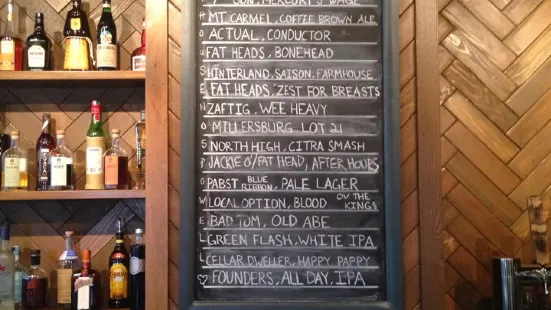 MT. CARMEL, COFFEE BROWN ALE
ACTUAL, CONDUCTOR
FAT HEADS, BONEHEAD
HINTERLAND, SAISON, FARMHOUSE
FAT HEADS, ZEST FOR BREASTS
ZAFTIG, WEE HEAVY
MILLERSBURG LOT 21
NORTH HIGH, CITRA SMASH
JACKIE O'/FAT HEAD, AFTER HOURS
PABST BLUE RIBBON, PALE LAGER
LOCAL OPTION, BLOOD OV THE KINGS
BAD TOM, OLD ABE
GREEN FLASH, WHITE IPA
CELLAR DWELLER, HAPPY PAPPY
FOUNDERS, ALL DAY, IPA